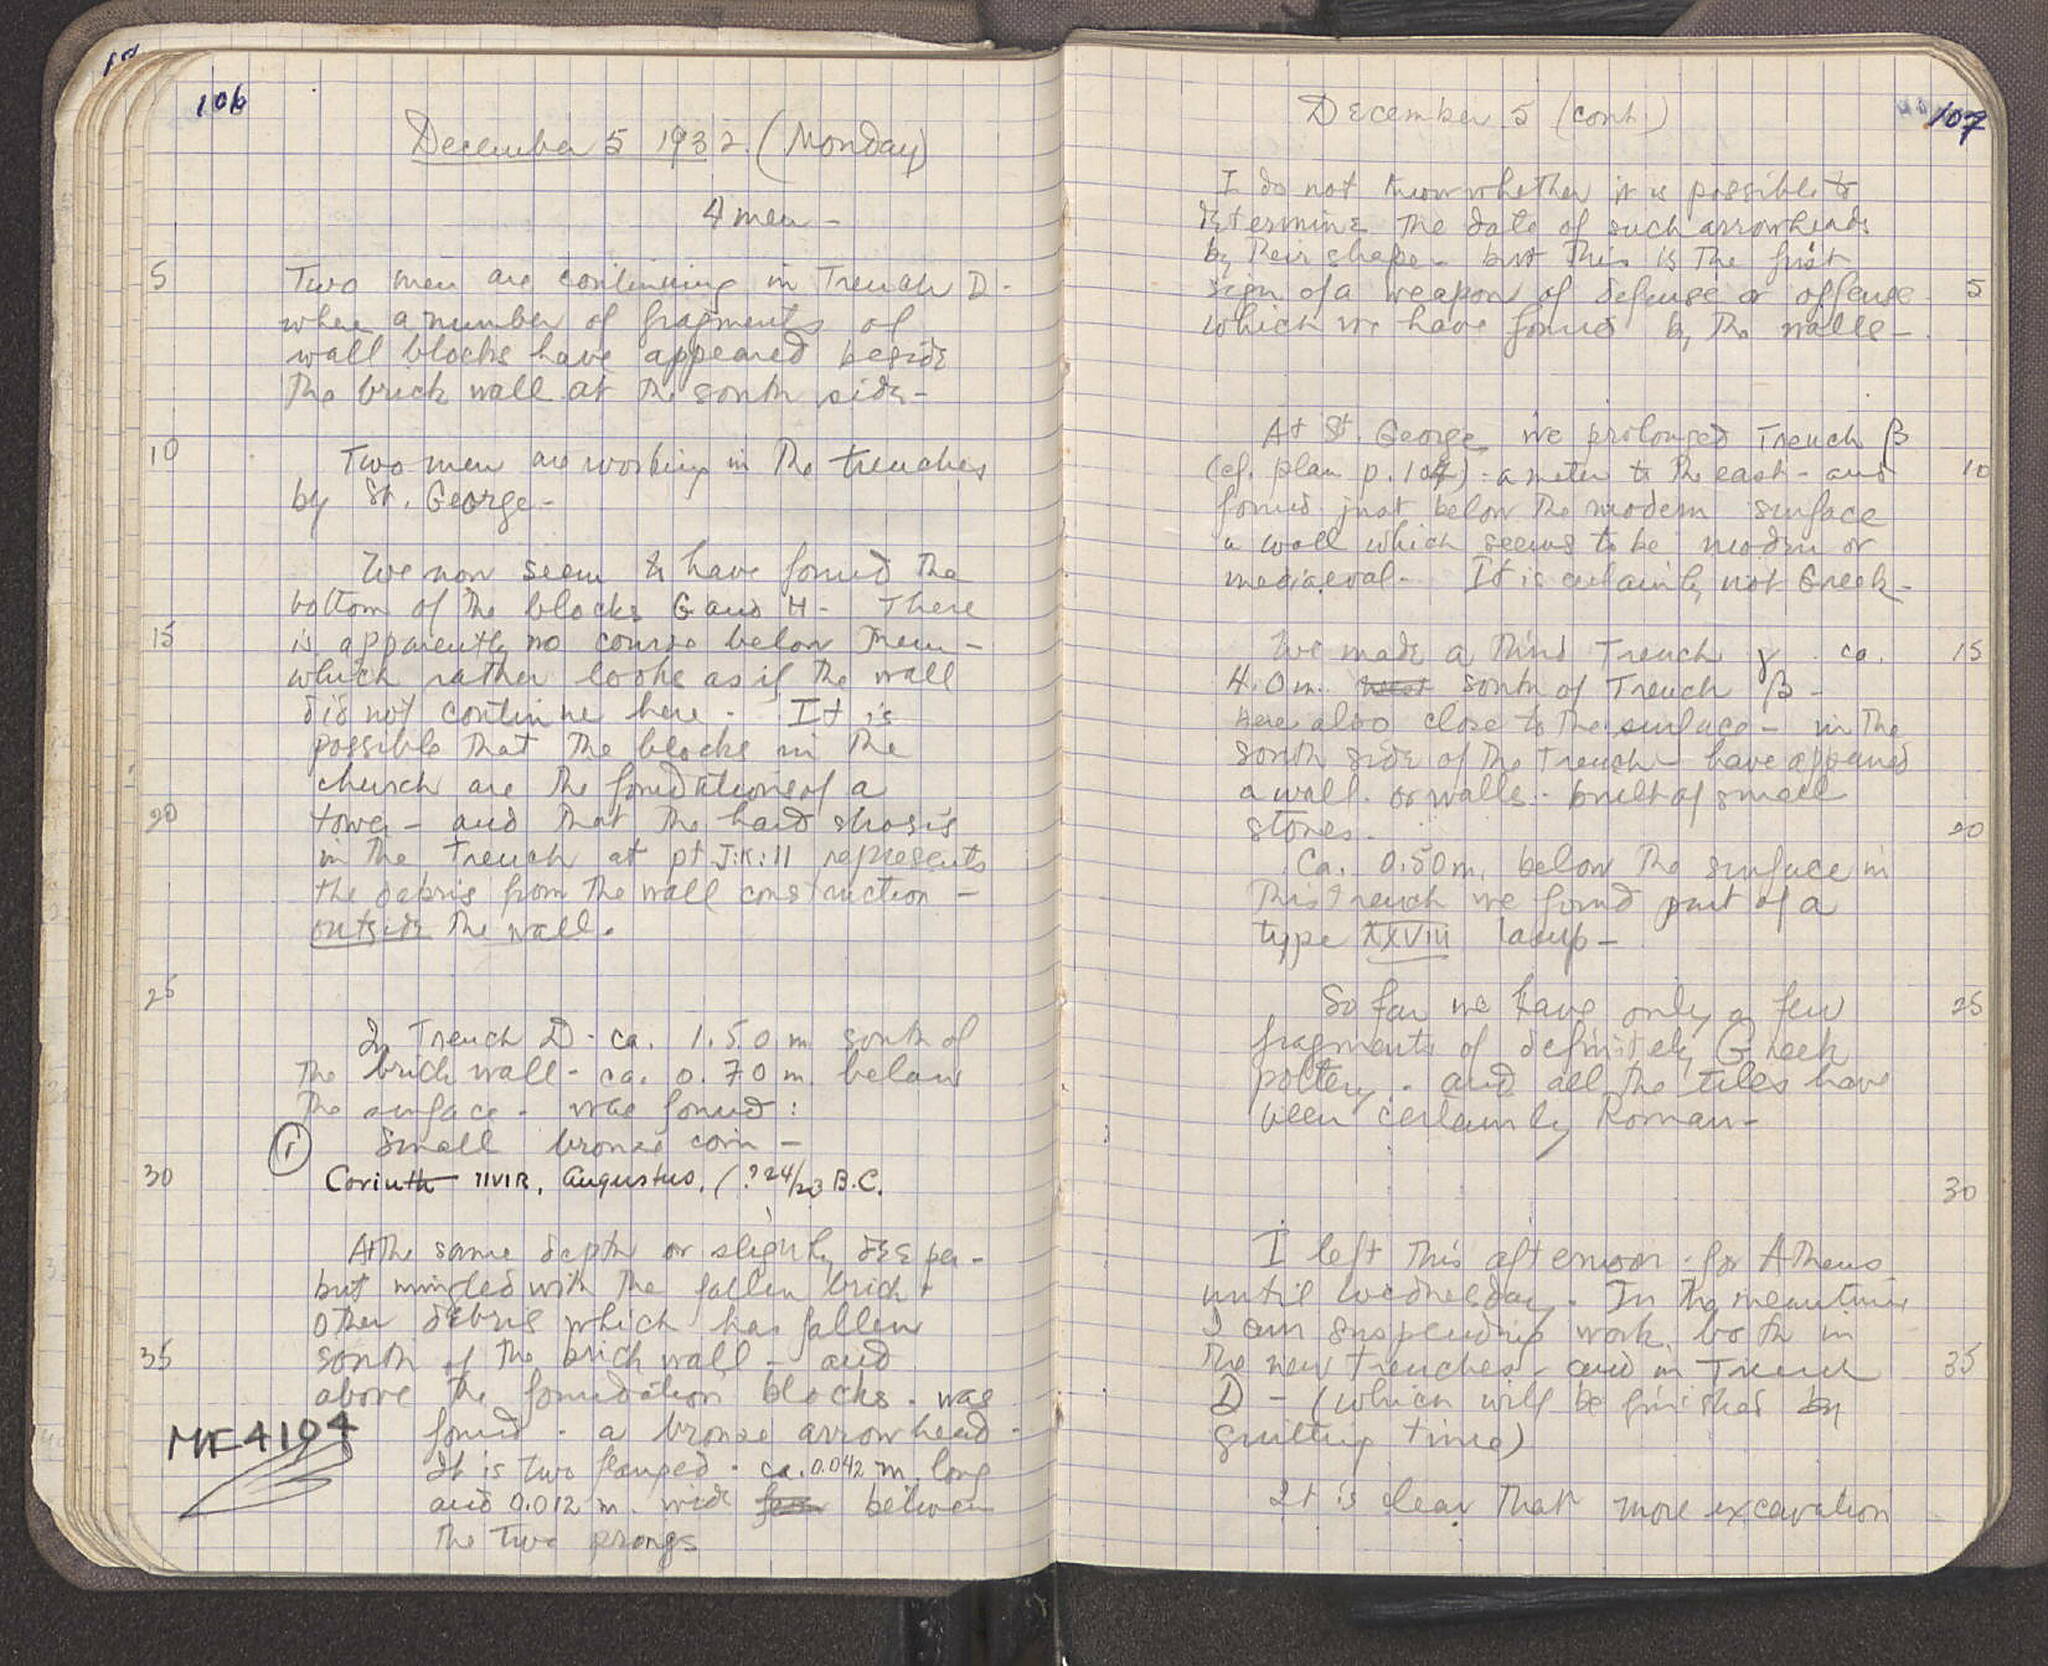 106
December 5 1932. (Monday)
4 men -
5
Two men are continuing in Trench D -
where a number of fragments of
wall blocks have appeared beside
the brick wall at the south side -
10
Two men are working in the trenches
by St. George -
We now seem to have found the
bottom of the blocks G and H - There
15
is apparently no course below them -
which rather looks as if the wall
did not continue here - It is
possible that the blocks in the
church are the foundations of a
20
tower - and that the hard strosis
in the trench at pt J:K:11 represents
the debris from the wall construction -
outside the wall.
25
In Trench D - ca. 1.50 m south of
the brick wall - ca. 0.70 m. below
the surface - was found:
① small bronze coin -
30
Corinth IIVIR, Augustus. (?24/23 B.C.
At the same depth or slightly deeper -
but mingled with the fallen brick +
other debris which has fallen
35
south of the brick wall - and
above the foundation blocks - was
MF 4194
found - a bronze arrowhead -
It is two flanged - ca. 0.042 m. long
and 0.012 m. wide between
the two prongs
107
December 5 (cont.)
I do not know whether it is possible to
determine the date of such arrowheads
by their shape - but this is the first
sign of a weapon of defense or offense
5
which we have found by the walls -
At St. George we prolonged Trench β
(cf. plan p. 104) - a meter to the east - and
10
found just below the modern surface
a wall which seems to be modern or
mediaeval - It is certainly not Greek -
We made a third Trench γ - ca.
15
4.0 m. south of Trench β -
Here also close to the surface - in the
south side of the trench - have appeared
a wall - or walls - built of small
stones -
20
Ca. 0.50 m. below the surface in
this trench we found part of a
type XXVIII lamp -
So far we have only a few
25
fragments of definitely Greek
pottery - and all the tiles have
been certainly Roman -
30
I left this afternoon - for Athens
until Wednesday - In the meantime
I am suspending work both in
the new trenches - and in Trench
35
D - (which will be finished by
quitting time)
It is clear that more excavation